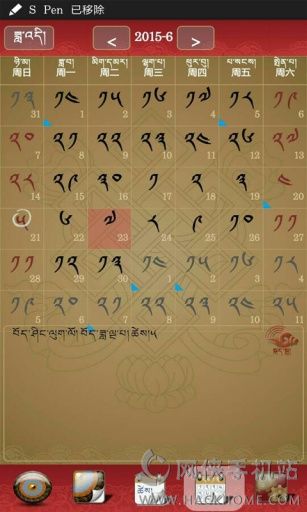 S Pen 已移除
ཟླ་འདི། < > 2015-6
ཉི་མ། ཟླ་བ། མིག་དམར། ལྷག་པ། ཕུར་བུ། པ་སངས། སྤེན་པ།
周日 周一 周二 周三 周四 周五 周六
༡༣ ༡༤ ༡༥ ༡༦ ༡༧ ༡༨ ༡༩
31 1 2 3 4 5 6
༢༠ ༢༡ ༢༢ ༢༣ ༢༤ ༢༥ ༢༦
7 8 9 10 11 12 13
༢༨ ༢༩ ༣༠ ༡ ༢ ༣ ༤
14 15 16 17 18 19 20
༥ ༦ ༧ ༨ ༩ ༡༠ ༡༡
21 22 23 24 25 26 27
༡༡ ༡༣ ༡༤ ༡༥ ༡༦ ༡༧ ༡༨
28 29 30 1 2 3 4
༡༩ ༢༠ ༢༡ ༢༢ ༢༣ ༢༤ ༢༥
5 6 7 8 9 10 11
བོད་ཤིང་ལུག་ལོ།་བོད་ཟླ་ལྔ་པ།ཚེས།༥
ཚེས།
网侠手机站
WWW.HACKHOME.COM